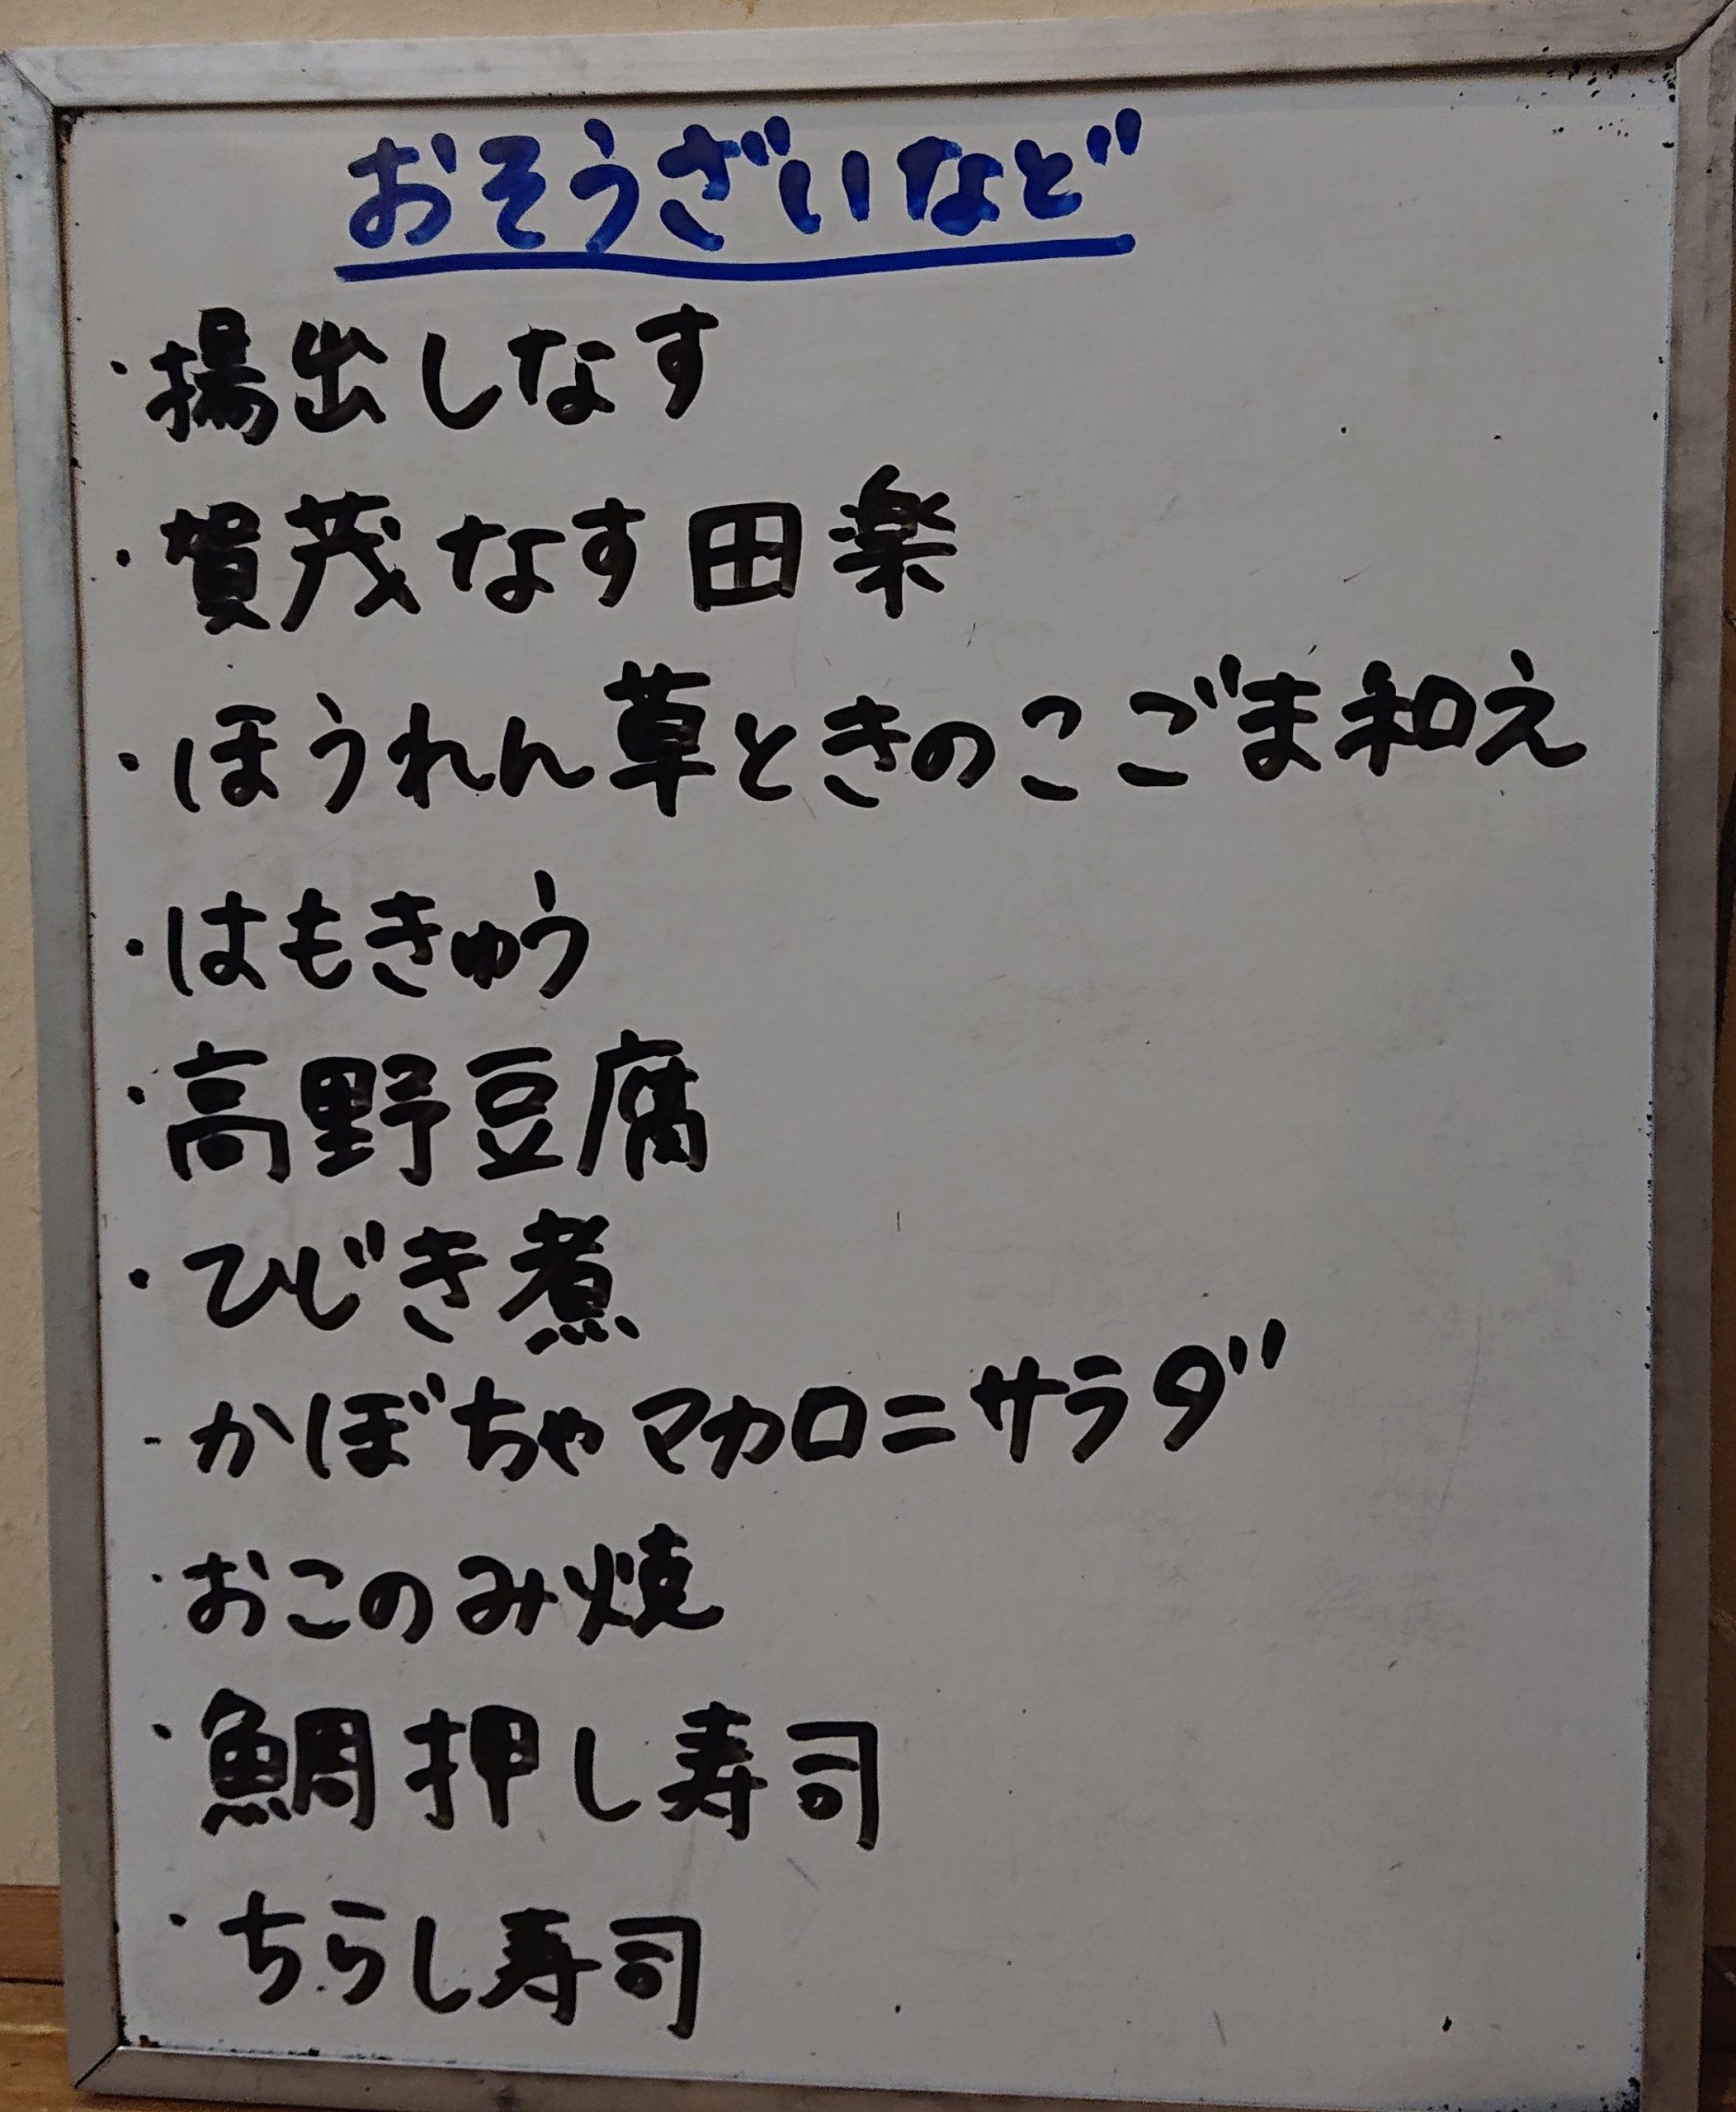 おそうざいなど
・揚出しなす
・賀茂なす田楽
・ほうれん草ときのこごま和え
・はもきゅう
・高野豆腐
・ひじき煮
・かぼちゃマカロニサラダ
・おこのみ焼
・鯛押し寿司
・ちらし寿司